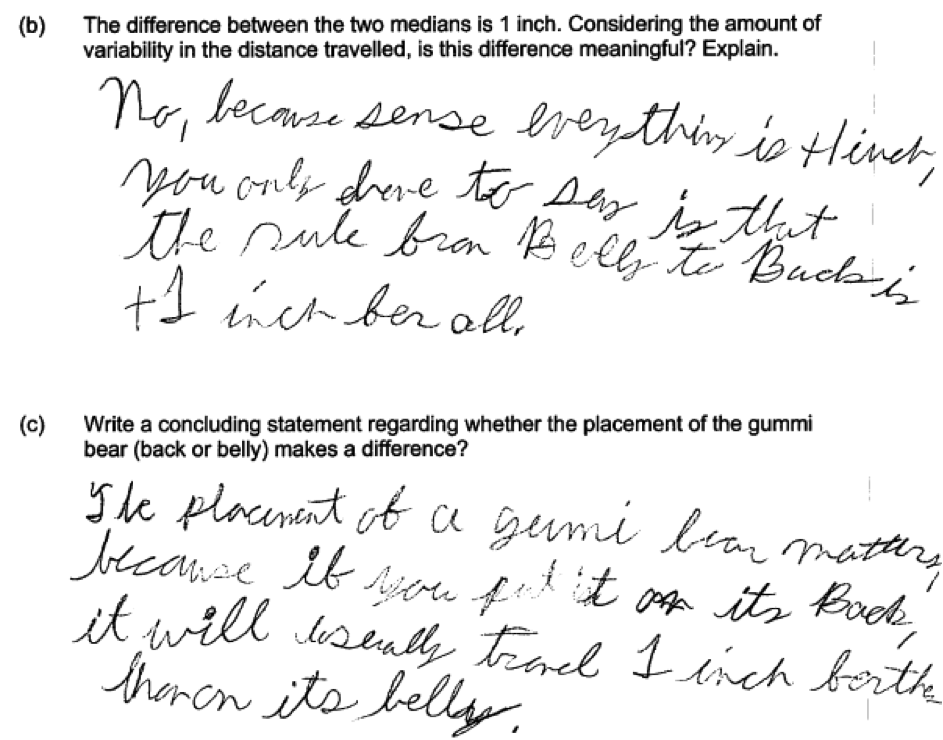 (b) The difference between the two medians is 1 inch. Considering the amount of
variability in the distance travelled, is this difference meaningful? Explain.
No, because sense everything is +1 inch,
you only have to say is that
the rule from Belly to Back is
+1 inch for all.
(c) Write a concluding statement regarding whether the placement of the gummi
bear (back or belly) makes a difference?
The placement of a gummi bear matters,
because if you put it on its Back,
it will usually travel 1 inch farther
than on its belly.